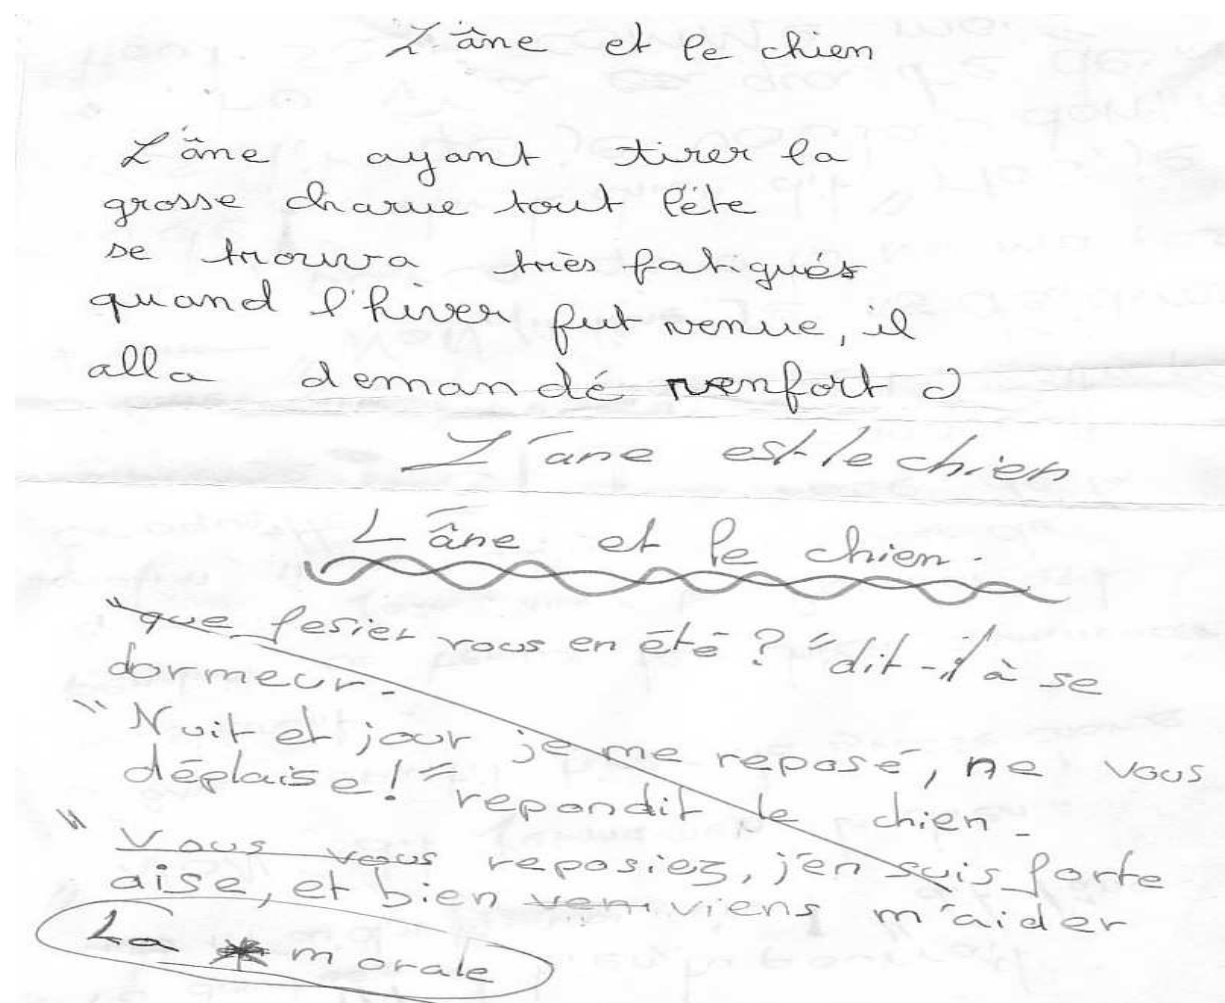 L'âne et le chien
L'âne ayant tirer la
grosse charue tout l'éte
se trouva très fatigués
quand l'hiver fut venue, il
alla demandé renfort
L'âne est le chien
L'âne et le chien.
"que fesier vous en été ?" dit-il à se
dormeur.
"Nuit et jour je me reposé, ne vous
déplaise!" repondit le chien.
"Vous vous reposiez, j'en suis forte
aise, et bien viens m'aider
La morale